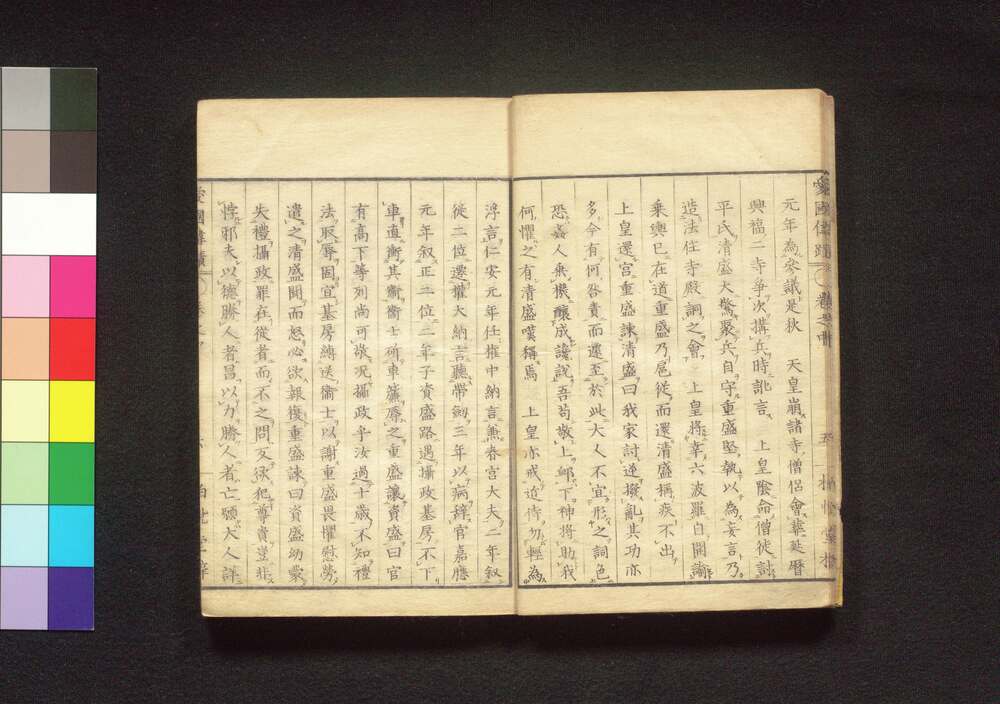 元年為參議是秋　天皇崩諸寺僧侶會葬延暦
興福二寺爭次搆兵時訛言　上皇陰命僧徒討
平氏清盛大驚聚兵自守重盛堅執以為妄言乃
造法住寺殿詗之會　上皇將幸六波羅自開諭
乘輿已在道重盛乃扈從而還清盛稱疾不出
上皇還宮重盛諫清盛曰我家討逆撥亂其功亦
多今有何咎責而遽至於此大人不宜形之詞色
恐姦人乘機釀成讒説吾苟敬上邮下神將助我
何懼之有清盛嘆稱焉　上皇亦戒近侍勿輕為
浮言仁安元年任權中納言兼春宮大夫二年叙
從二位還權大納言聽帶劍三年以病辭官嘉應
元年叙正二位二年子資盛路遇攝政基房不下
車直衝其衞衞士斫車簾辱之重盛讓資盛曰官
有高下等列尚可敬况攝政乎汝過十歳不知禮
法取辱固宜基房縛送衞士以謝重盛畏懼慰勞
遣之清盛聞而怒必欲報復重盛諫曰資盛幼蒙
失禮攝政罪在從者而不之問又欲犯尊貴豈非
悖邪夫以德勝人者昌以力勝人者亡願大人詳